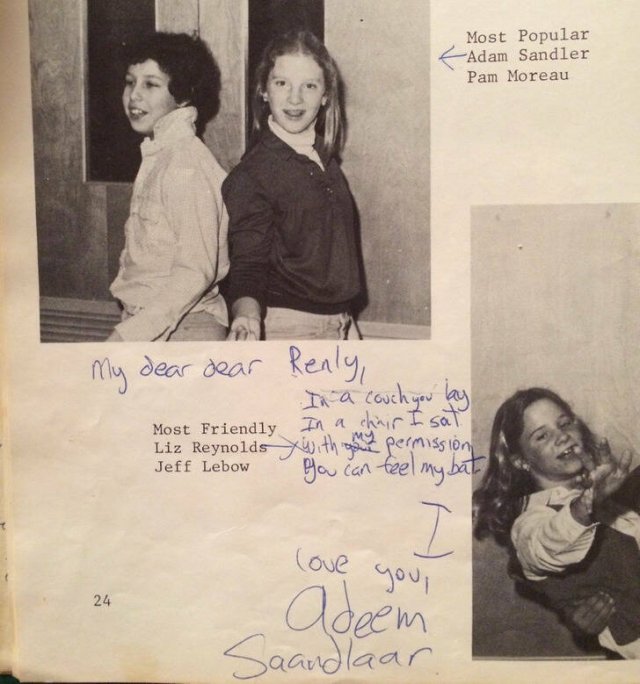 Most Popular
Adam Sandler
Pam Moreau
My dear dear Renly,
In a couch you lay
In a chair I sat
With my permission
You can feel my bat
Most Friendly
Liz Reynolds
Jeff Lebow
I
love you,
Adeem
Saandlaar
24